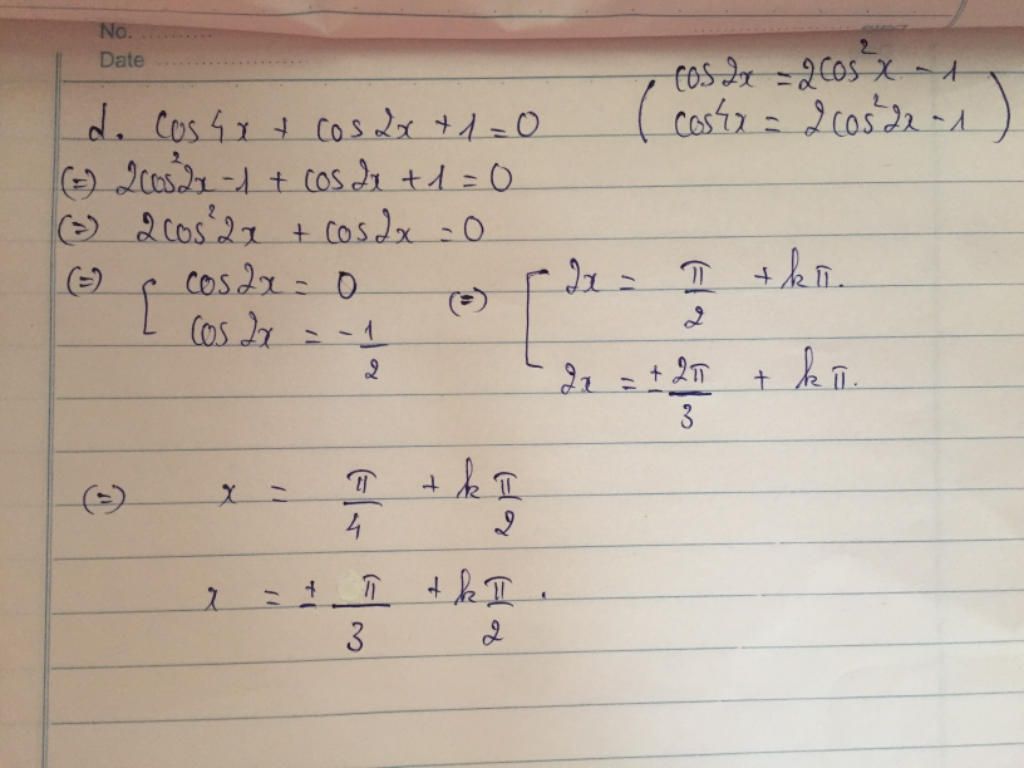 No. ............
Date ........................
cos2x = 2cos²x - 1
d. cos4x + cos2x + 1 = 0 ( cos4x = 2cos²2x - 1 )
(=) 2cos²2x - 1 + cos2x + 1 = 0
(=) 2cos²2x + cos2x = 0
(=) [ cos2x = 0 (=) [ 2x = π/2 + kπ.
cos2x = -1/2
2x = ± 2π/3 + kπ.
(=) x = π/4 + k π/2
x = ± π/3 + k π/2 .